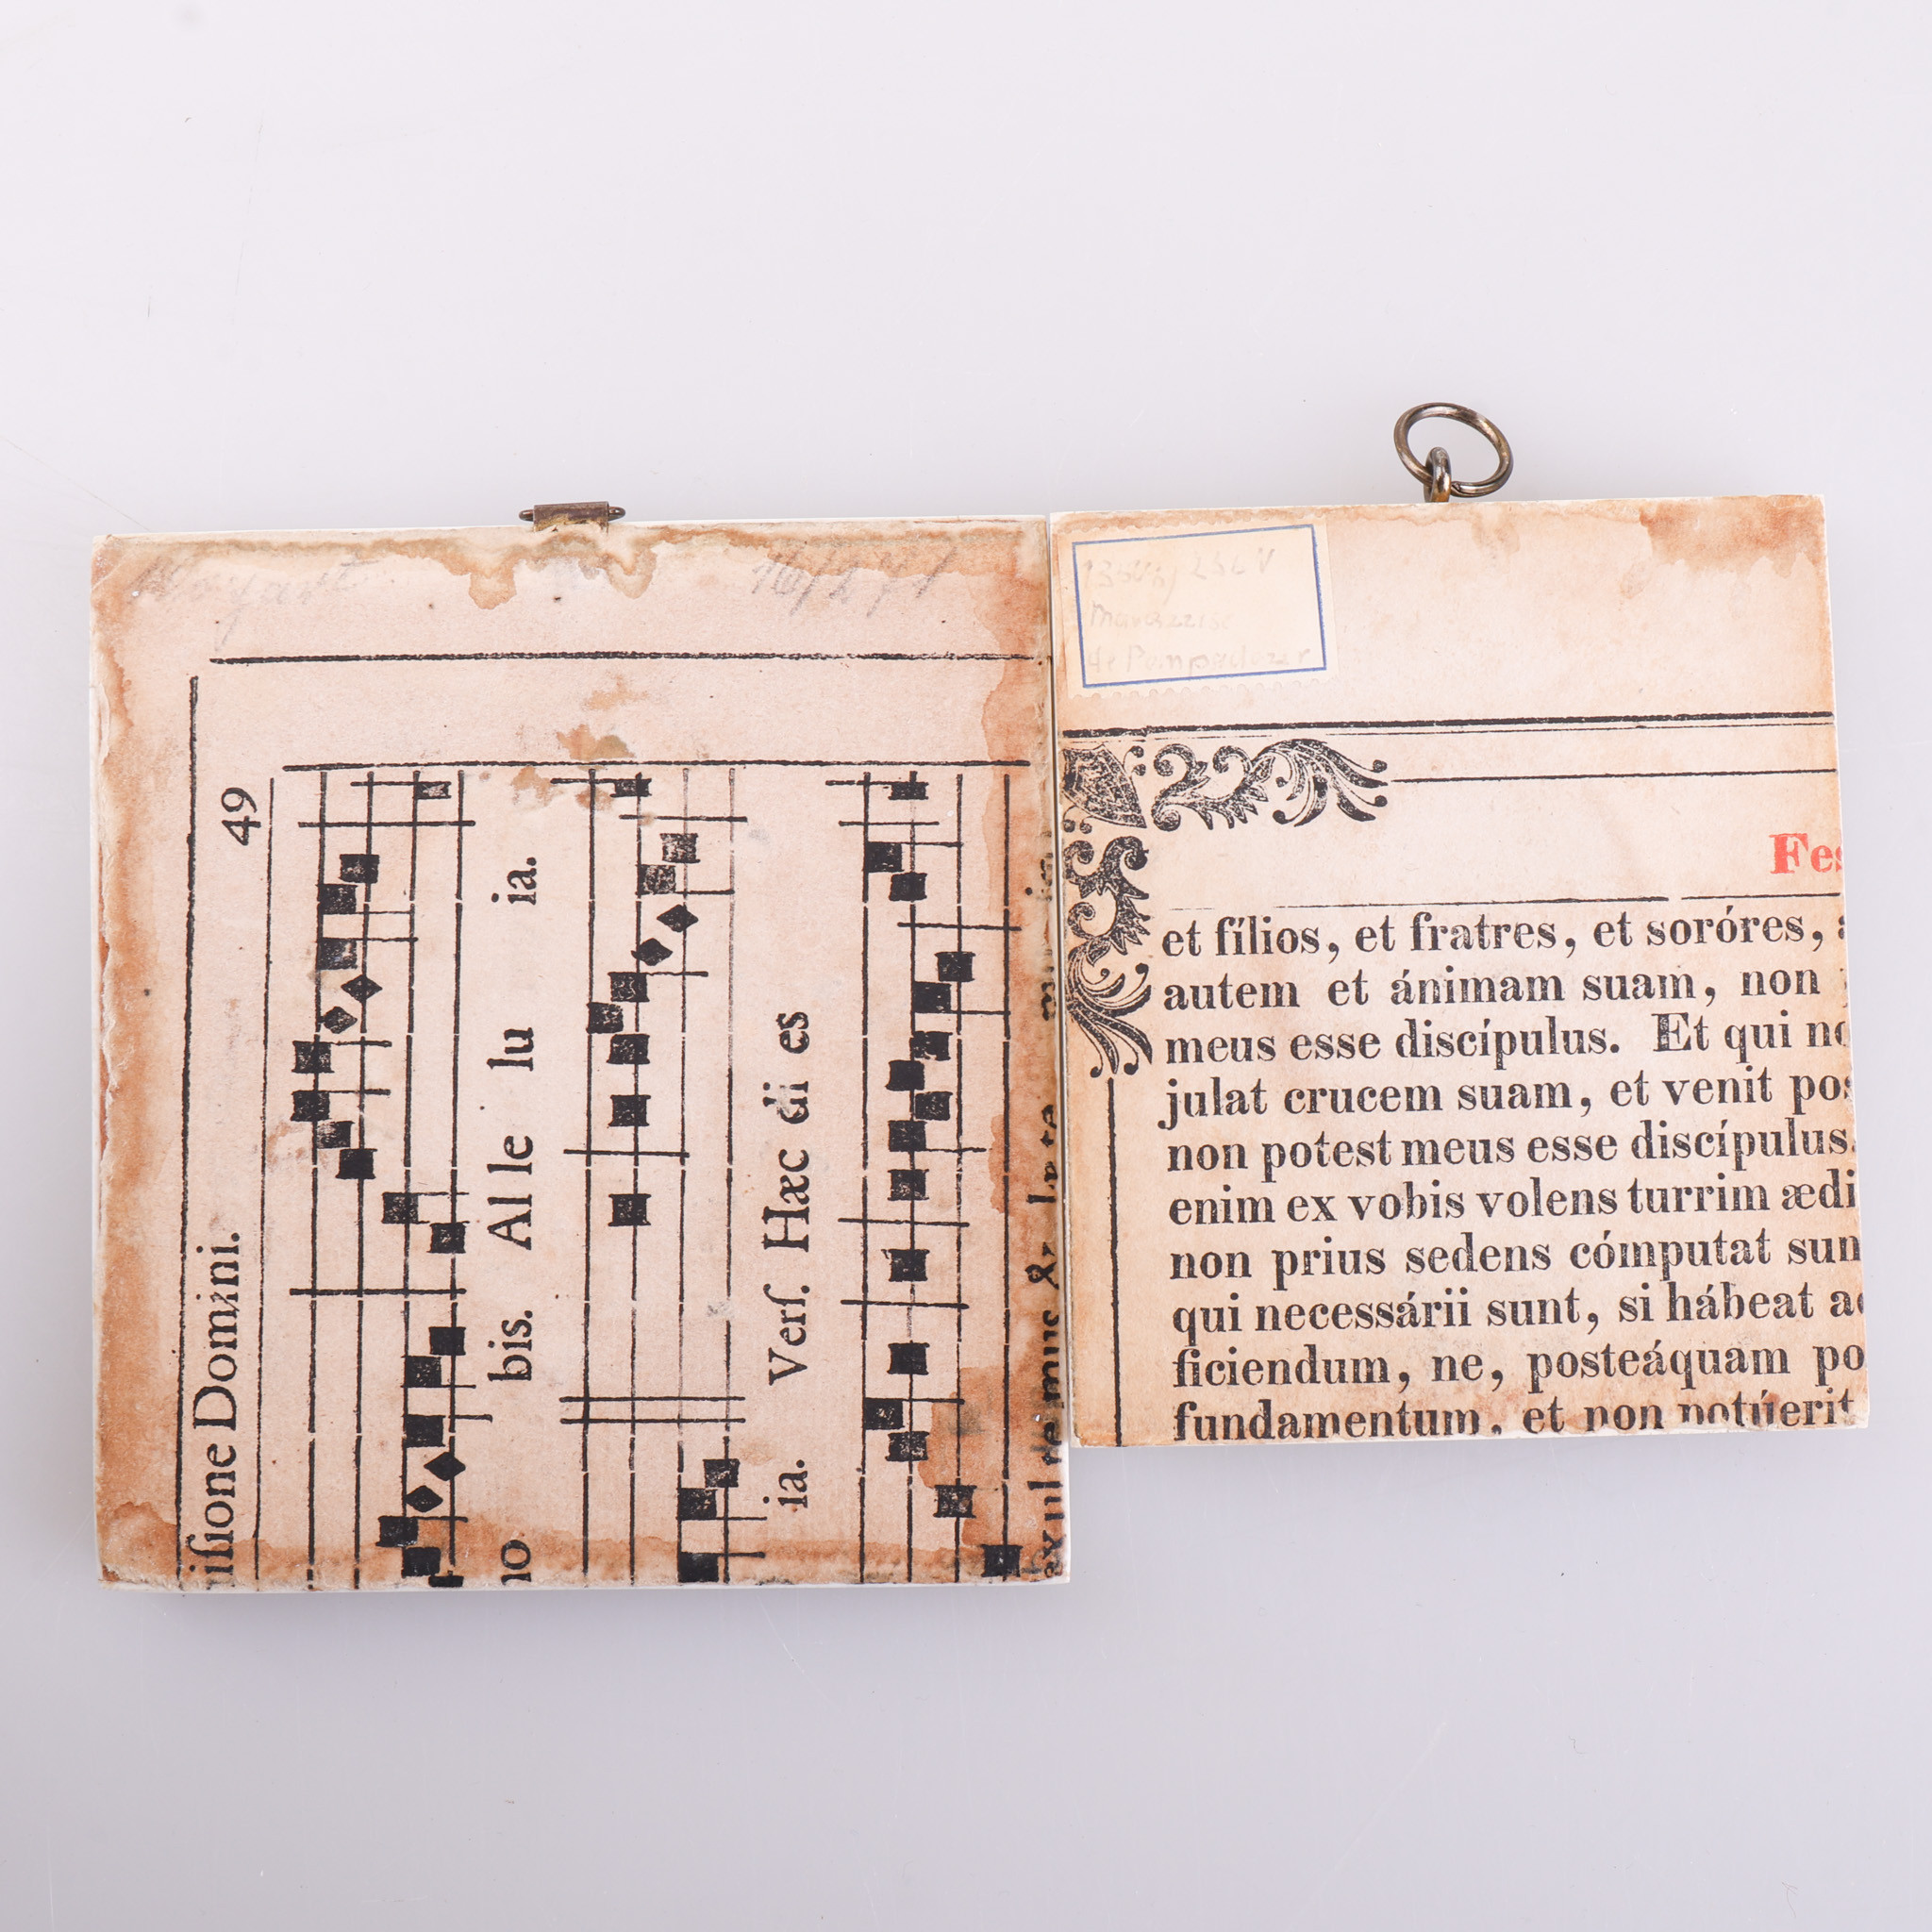 49
iſione Domini.
bis. Al le lu ia.
no
ia. Verſ. Hæc di es
16/271
de Pompadour
Fes
et fílios, et fratres, et soróres, a
autem et ánimam suam, non
meus esse discípulus. Et qui no
julat crucem suam, et venit pos
non potest meus esse discípulus.
enim ex vobis volens turrim ædi
non prius sedens cómputat sum
qui necessárii sunt, si hábeat ad
ficiendum, ne, posteáquam po
fundamentum, et non potúerit